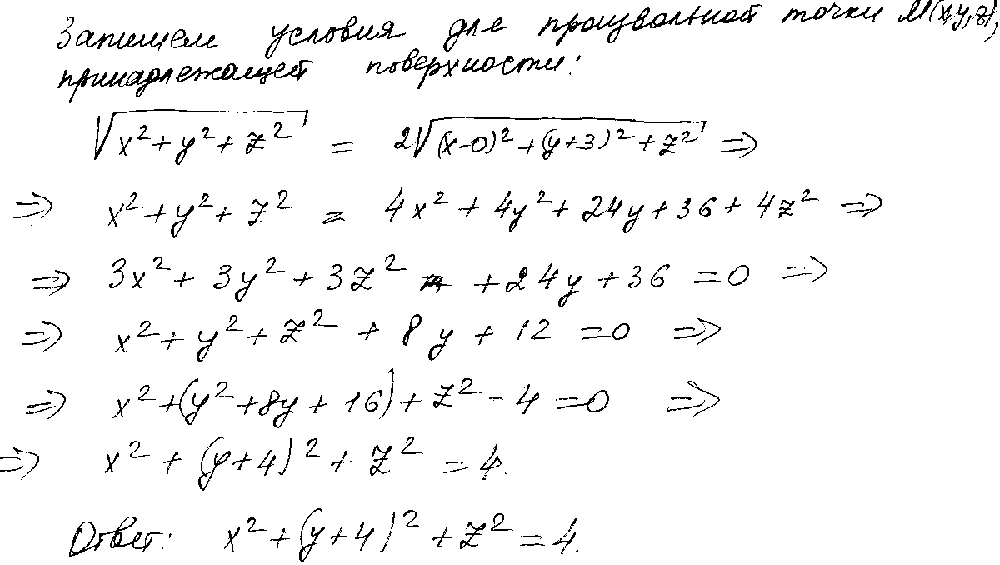 Запишем условия для произвольной точки M(x,y,z),
принадлежащей поверхности:
√(x²+y²+z²) = 2√((x-0)²+(y+3)²+z²) ⇒
⇒ x²+y²+z² = 4x²+4y²+24y+36+4z² ⇒
⇒ 3x²+3y²+3z² +24y+36=0 ⇒
⇒ x²+y²+z²+8y+12=0 ⇒
⇒ x²+(y²+8y+16)+z²-4=0 ⇒
⇒ x²+(y+4)²+z²=4.
Ответ: x²+(y+4)²+z²=4.